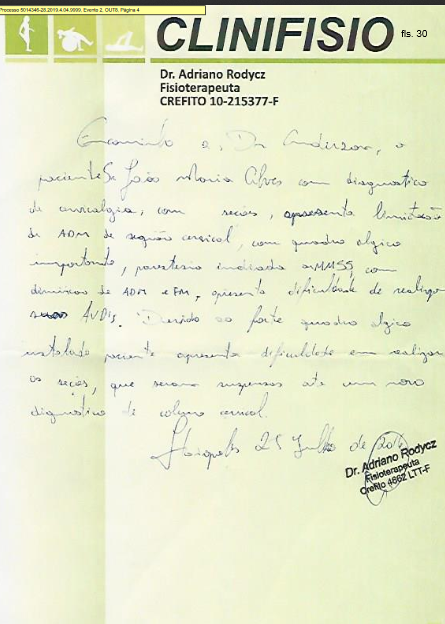 Processo 5014346-28.2019.4.04.9999, Evento 2, OUT8, Página 4
CLINIFISIO
fls. 30
Dr. Adriano Rodycz
Fisioterapeuta
CREFITO 10-215377-F
Encaminho a, Dr. Anderson, o
paciente Sr João Maria Alves com diagnostico
de cervicalgia, com seções, apresenta limitação
de ADM de região cervical, com quadro algico
importante, parestesia MMSS, com
diminuição de ADM e FM, apresenta dificuldade de realizar
suas AVDs. Devido ao forte quadro algico
instalado paciente apresenta dificuldade em realizar
as seções, que seram suspensas até um novo
diagnostico de coluna cervical.
25 Julho de
Dr. Adriano Rodycz
Fisioterapeuta
Crefito 4662 LTT-F